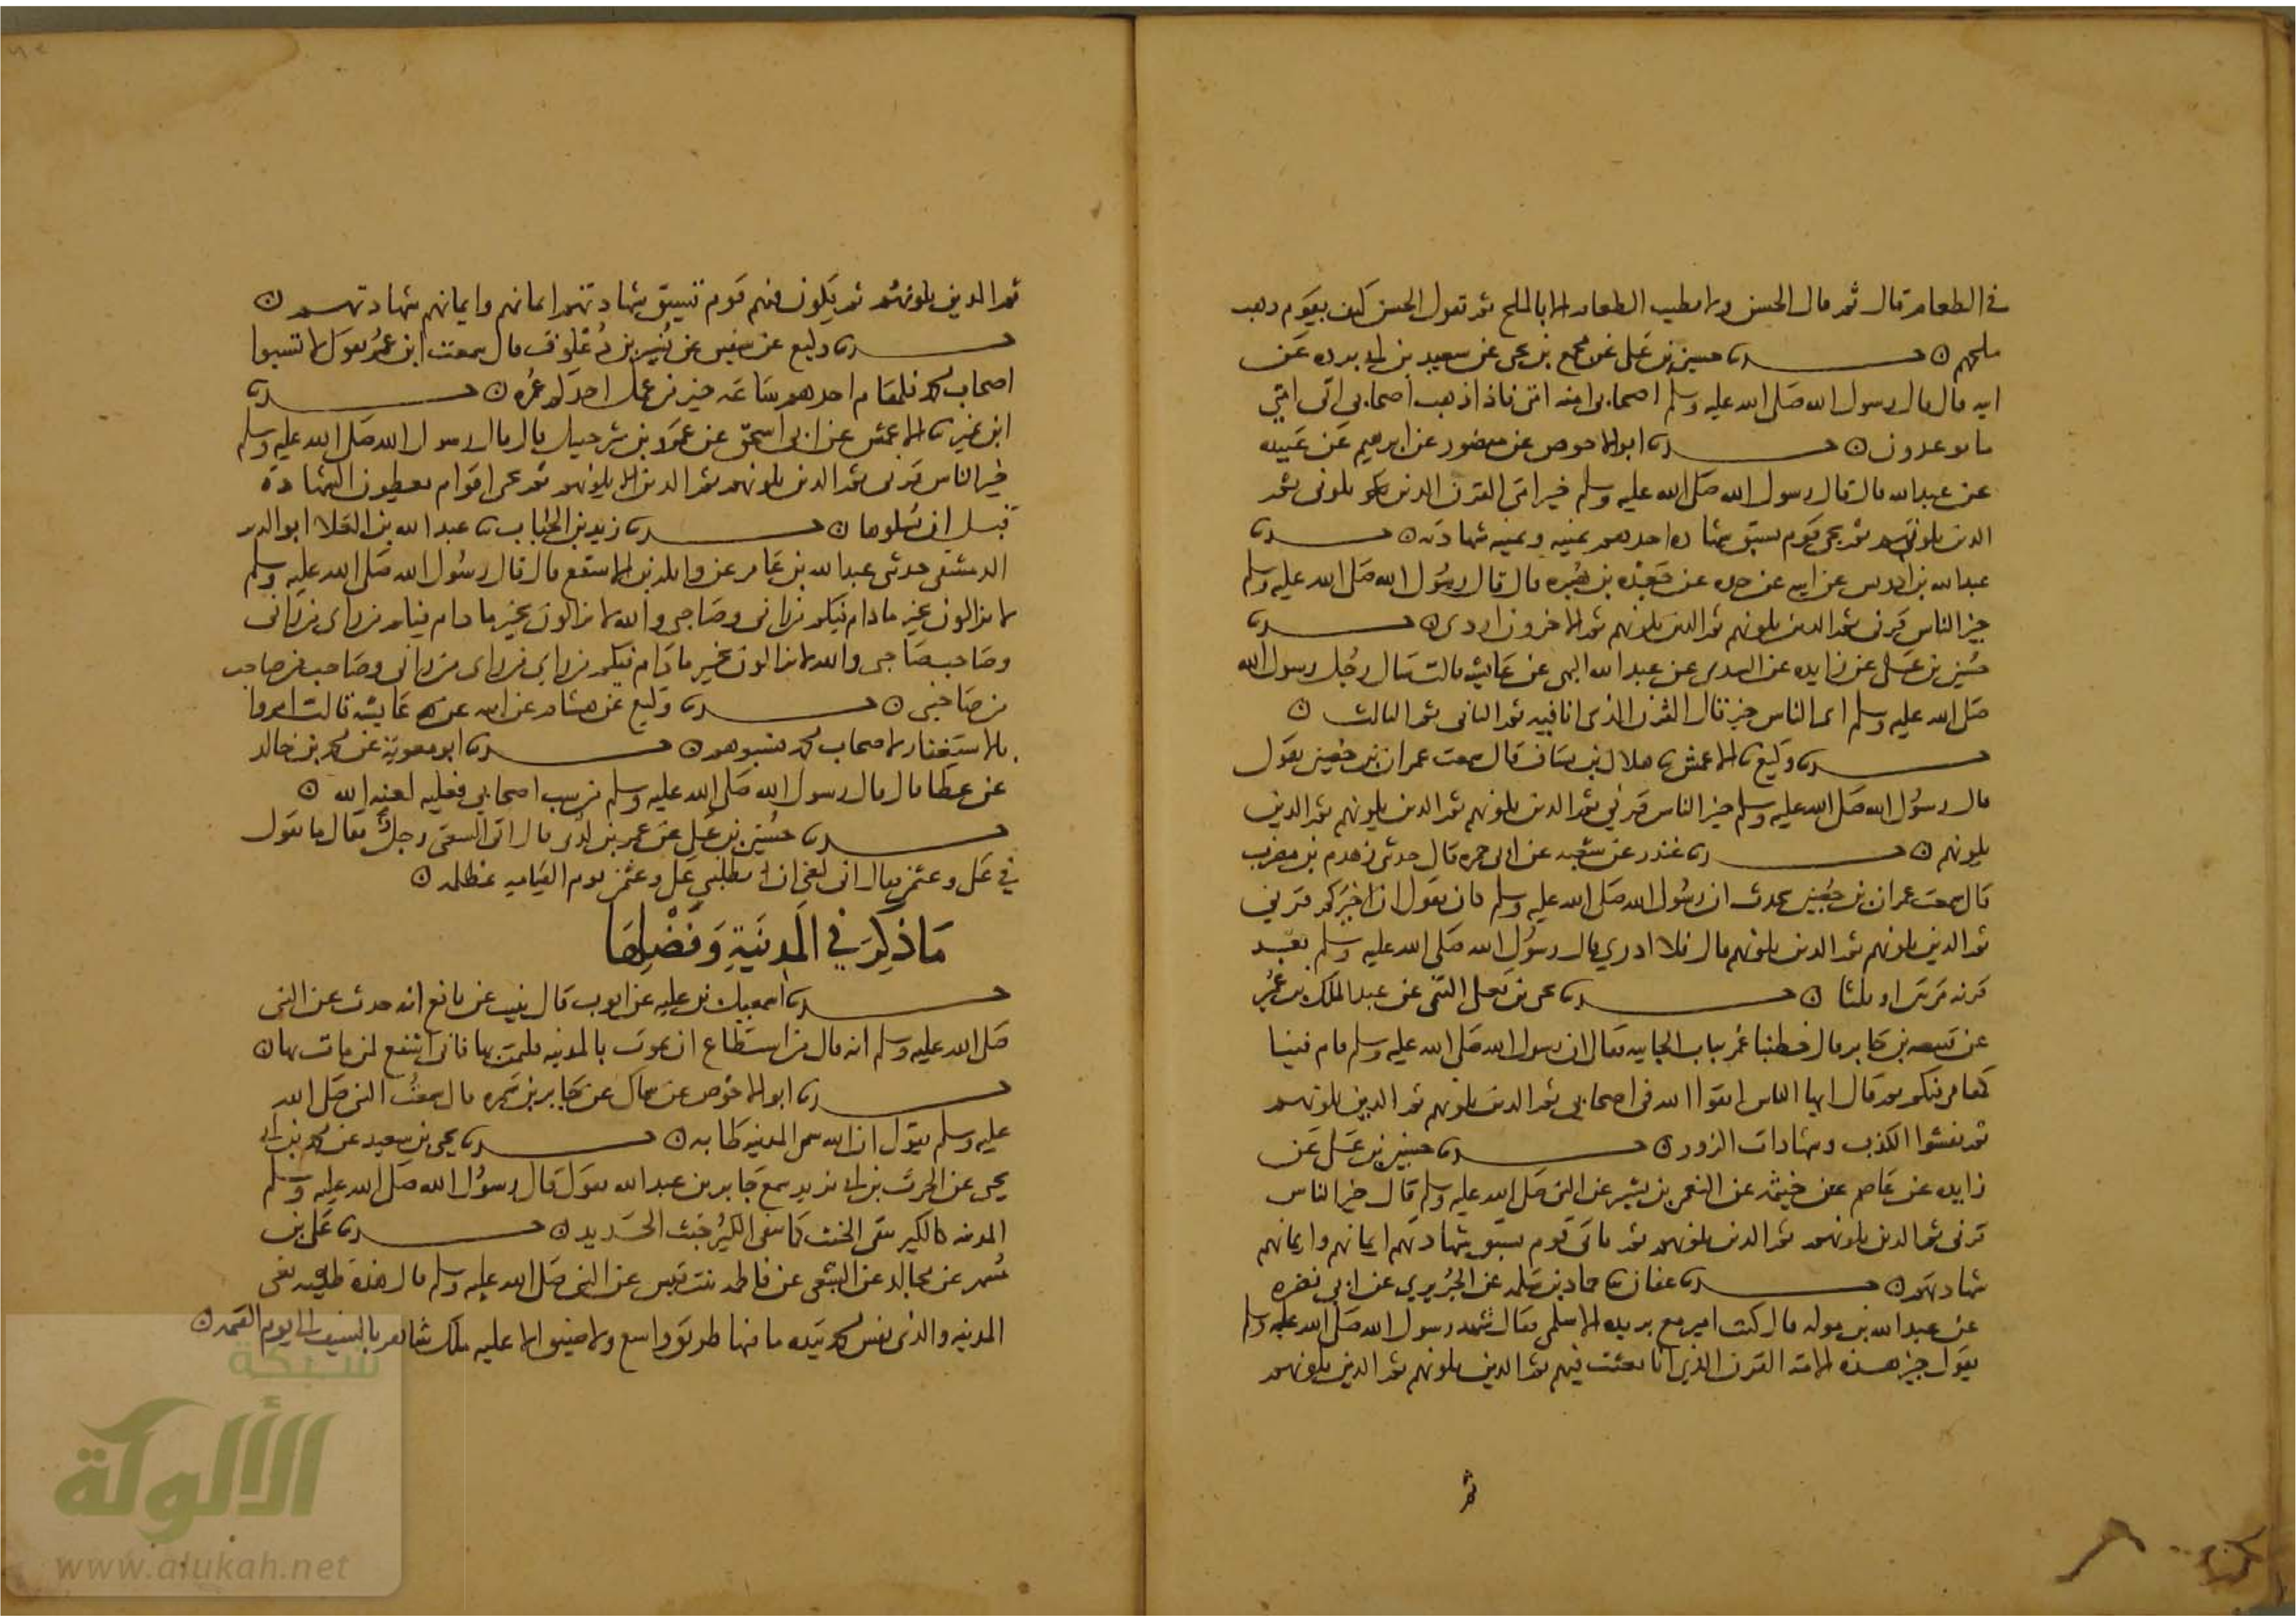 في الطعام قال ثم قال الحسن ولا يطيب الطعام الا بالملح ثم تقول الحسن كيف بقوم ذهب
ملحهم ں حدثنا حسين بن علي عن مجمع بن يحيى عن سعيد بن ابي بردة عن
ابيه قال قال رسول الله صلى الله عليه وسلم اصحابي امنة امتي فاذا ذهب اصحابي اتى امتي
ما يوعدون ں حدثنا ابو الاحوص عن منصور عن ابرهيم عن عبيدة
عن عبد الله قال قال رسول الله صلى الله عليه وسلم خير امتي القرن الذين يلوني ثم
الذين يلونهم ثم يجي قوم تسبق شهادة احدهم يمينه ويمينه شهادته ں حدثنا
عبد الله بن ادريس عن ابيه عن جده عن جعدة بن هبيرة قال قال رسول الله صلى الله عليه وسلم
خير الناس قرني ثم الذين يلونهم ثم الذين يلونهم ثم الاخرون اردى ں حدثنا
حسين بن علي عن زايدة عن السدي عن عبد الله البهي عن عايشة قالت سال رجل رسول الله
صلى الله عليه وسلم اي الناس خير قال القرن الذي انا فيه ثم الثاني ثم الثالث ں
حدثنا وكيع ثنا الاعمش ثنا هلال بن يساف قال سمعت عمران بن حصين يقول
قال رسول الله صلى الله عليه وسلم خير الناس قرني ثم الذين يلونهم ثم الذين يلونهم ثم الذين
يلونهم ں حدثنا غندر عن شعبة عن ابي حمرة قال حدثني زهدم بن مضرب
قال سمعت عمران بن حصين يحدث ان رسول الله صلى الله عليه وسلم كان يقول ان خيركم قرني
ثم الذين يلونهم ثم الذين يلونهم قال فلا ادري قال رسول الله صلى الله عليه وسلم بعد
قرنه مرتين او ثلثا ں حدثنا يحيى بن يعلى التيمي عن عبد الملك بن عمير
عن قبيصة بن جابر قال خطبنا عمر بباب الجابية فقال ان رسول الله صلى الله عليه وسلم قام فينا
كمقامي فيكم ثم قال ايها الناس اتقوا الله في اصحابي ثم الذين يلونهم ثم الذين يلونهم
ثم تفشوا الكذب وشهادات الزور ں حدثنا حسين بن علي عن
زايدة عن عاصم عن خيثمة عن النعمن بن بشير عن النبي صلى الله عليه وسلم قال خير الناس
قرني ثم الذين يلونهم ثم الذين يلونهم ثم ياتي قوم تسبق شهادتهم ايمانهم وايمانهم
شهادتهم ں حدثنا عفان ثنا حماد بن سلمة عن الجريري عن ابي نضرة
عن عبد الله بن مولة قال كنت اسير مع بريدة الاسلمي فقال سمعت رسول الله صلى الله عليه وسلم
يقول خير هذه الامة القرن الذي انا بعثت فيهم ثم الذين يلونهم ثم الذين يلونهم
ثم
ثم الذين يلونهم ثم يكون فيهم قوم تسبق شهادتهم ايمانهم وايمانهم شهادتهم ں
حدثنا وكيع عن سفين عن نسير بن ذعلوق قال سمعت ابن عمر يقول لا تسبوا
اصحاب محمد فلمقام احدهم ساعة خير من عمل احدكم عمره ں حدثنا
ابن نمير ثنا الاعمش عن ابي اسحق عن عمرو بن شرحبيل قال قال رسول الله صلى الله عليه وسلم
خير الناس قرني ثم الذين يلونهم ثم الذين يلونهم ثم يجي اقوام يعطون الشهادة
قبل ان يسلوها ں حدثنا زيد بن الحباب ثنا عبد الله بن العلا ابو الزبر
الدمشقي حدثني عبد الله بن عامر عن واثلة بن الاسقع قال قال رسول الله صلى الله عليه وسلم
لا تزالون بخير ما دام فيكم من راني وصاحبي والله لا تزالون بخير ما دام فيكم من راى من راني
وصاحب صاحبي والله لا تزالون بخير ما دام فيكم من راى من راى من راني وصاحب من صاحب
من صاحبني ں حدثنا وكيع عن هشام عن ابيه عن عايشة قالت امروا
بالاستغفار لاصحاب محمد فسبوهم ں حدثنا ابو معوية عن محمد بن خالد
عن عطا قال قال رسول الله صلى الله عليه وسلم من سب اصحابي فعليه لعنة الله ں
حدثنا حسين بن علي عن عمر بن ذر قال اتى الشعبي رجل فقال ما تقول
في علي وعثمن فقال اني لغني ان يطلبني علي وعثمن يوم القيامة بمظلمة ں
مَا ذُكِرَ فِي المَدِينَةِ وَفَضْلِهَا
حدثنا اسمعيل بن علية عن ايوب قال نبيت عن نافع انه حدث عن النبي
صلى الله عليه وسلم انه قال من استطاع ان يموت بالمدينة فليمت بها فاني اشفع لمن مات بها ں
حدثنا ابو الاحوص عن سماك عن جابر بن سمرة قال سمعت النبي صلى الله
عليه وسلم يقول ان الله سمى المدينة طابة ں حدثنا يحيى بن سعيد عن محمد بن ابي
يحيى عن الحرث بن ابي يزيد سمع جابر بن عبد الله يقول قال رسول الله صلى الله عليه وسلم
المدينة كالكير تنفي الخبث كما ينفي الكير خبث الحديد ں حدثنا علي بن
مسهر عن مجالد عن الشعبي عن فاطمة بنت قيس عن النبي صلى الله عليه وسلم قال هذه طيبة يعني
المدينة والذي نفس محمد بيده ما فيها طريق واسع ولا ضيق الا عليه ملك شاهر بالسيف الى يوم القيمة ں
شبكة
الألوكة
www.alukah.net